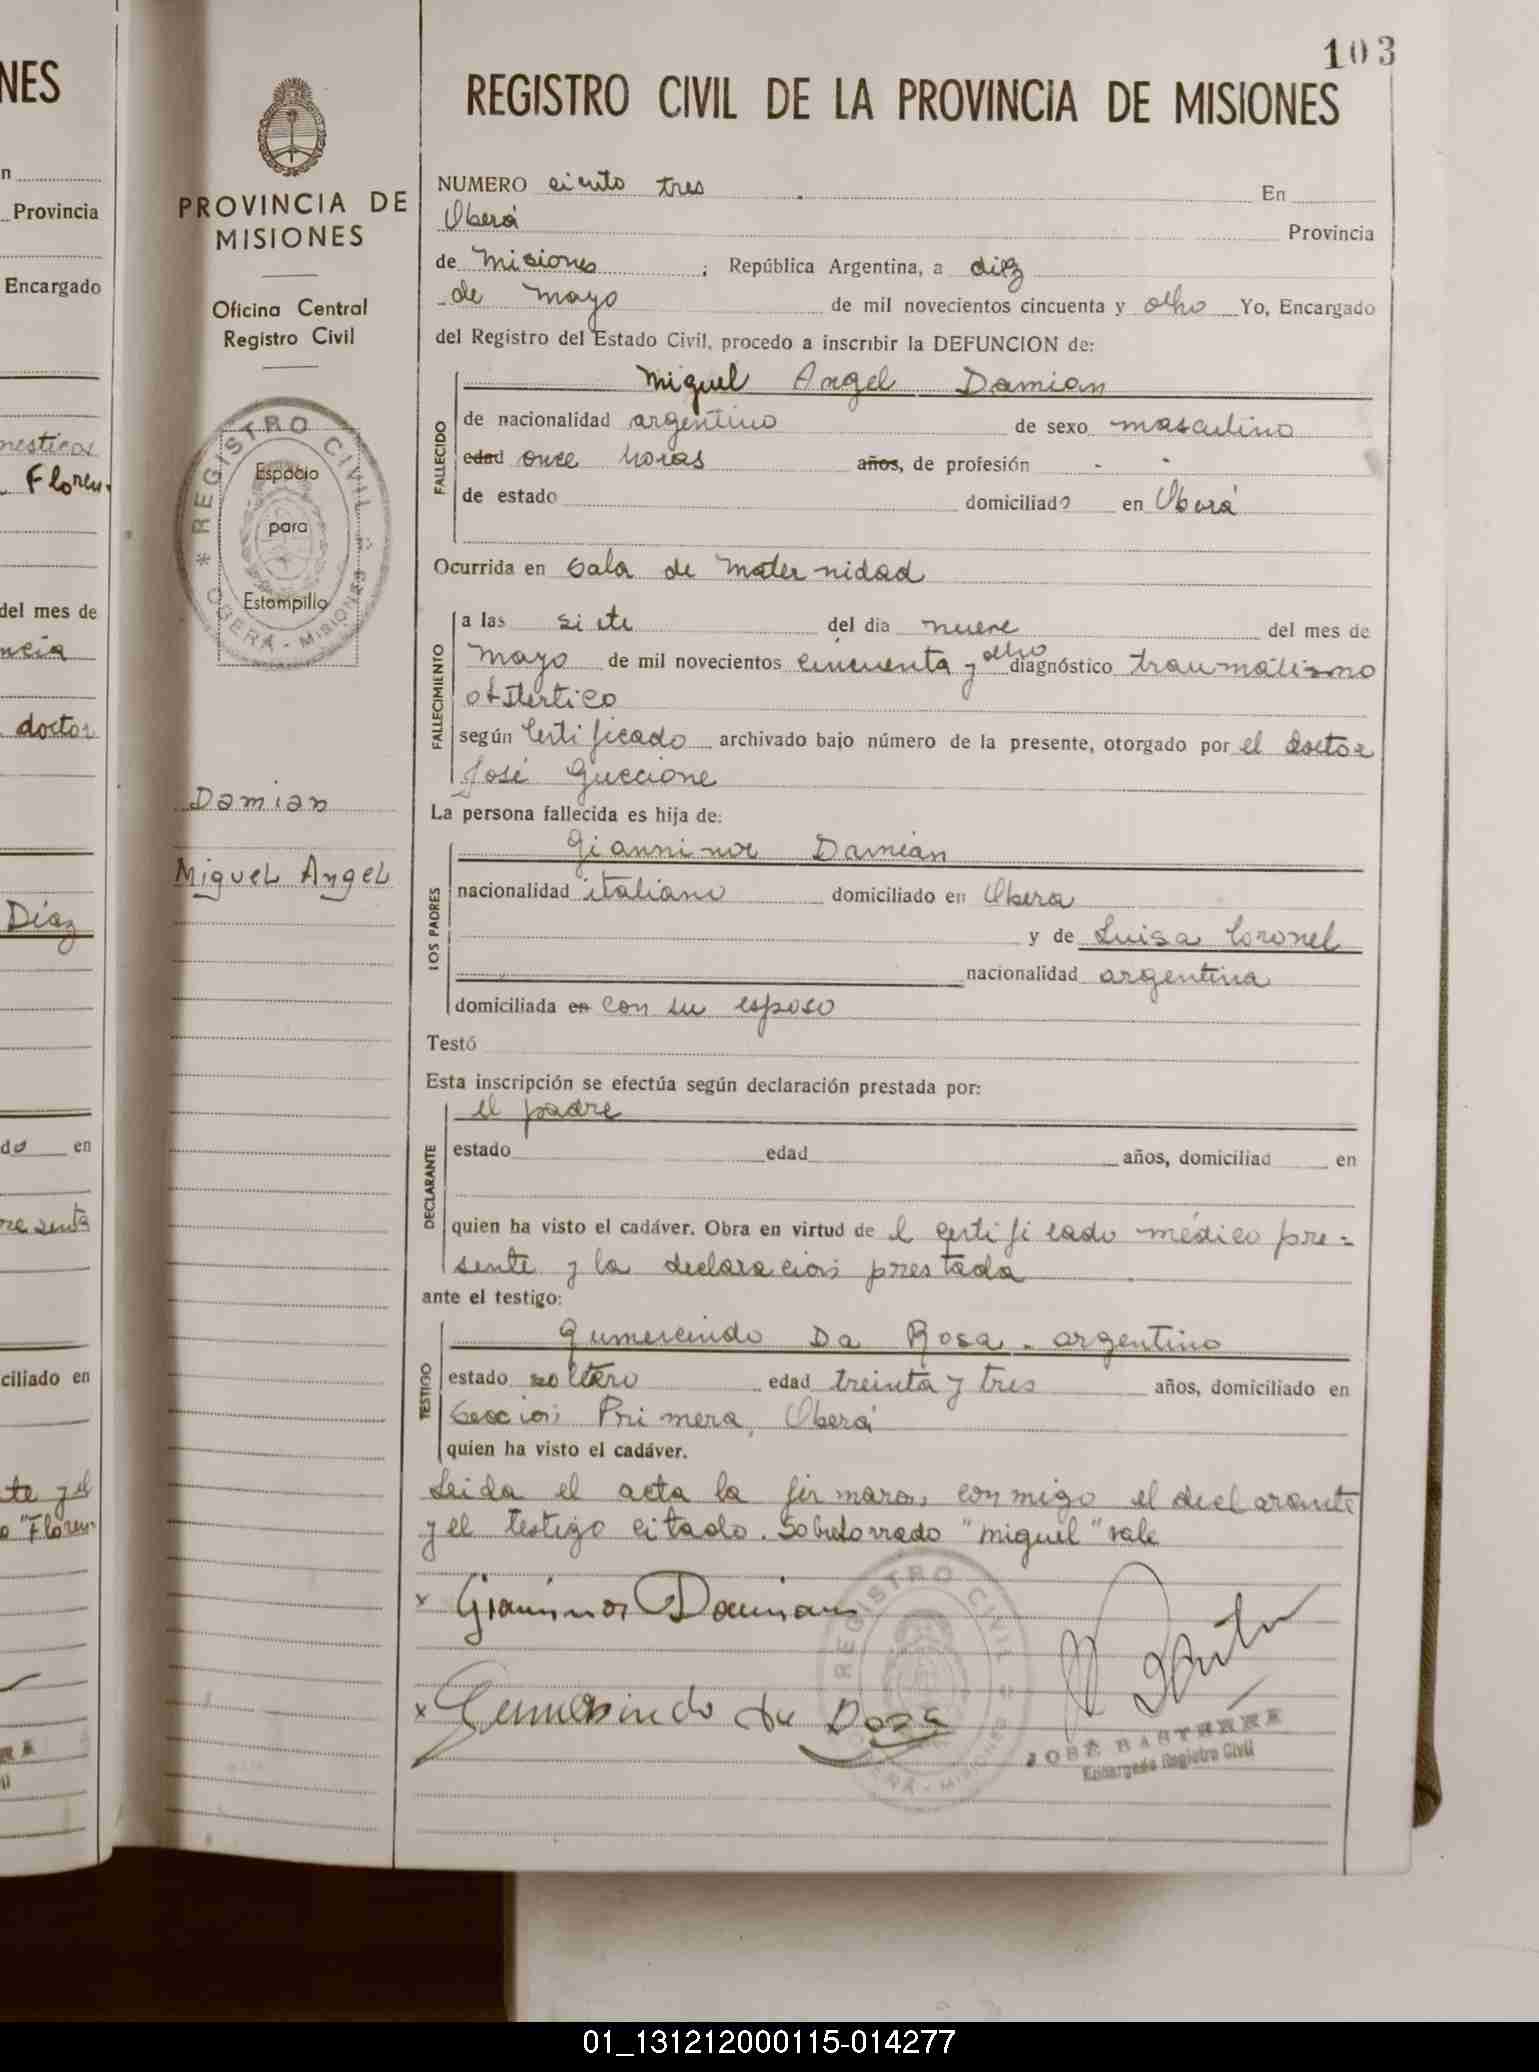 103
REGISTRO CIVIL DE LA PROVINCIA DE MISIONES
NES
n
Provincia
Encargado
mesticos
Floren-
del mes de
ncia
doctor
Diaz
do en
presenta
ciliado en
te y el
"Floren-
PROVINCIA DE
MISIONES
Oficina Central
Registro Civil
REGISTRO CIVIL
OBERÁ - MISIONES
Espacio
para
Estampilla
Damian
Miguel Angel
NUMERO ciento tres En
Oberá Provincia
de Misiones ; República Argentina, a diez
de mayo de mil novecientos cincuenta y ocho Yo, Encargado
del Registro del Estado Civil, procedo a inscribir la DEFUNCION de:
FALLECIDO
Miguel Angel Damian
de nacionalidad argentino de sexo masculino
edad once horas años, de profesión - -
de estado domiciliado en Oberá
Ocurrida en Sala de Maternidad
FALLECIMIENTO
a las siete del dia nueve del mes de
mayo de mil novecientos cincuenta y ocho diagnóstico traumatismo
obstertico
según Certificado archivado bajo número de la presente, otorgado por el doctor
José Guccione
La persona fallecida es hija de:
LOS PADRES
Gianninor Damian
nacionalidad italiano domiciliado en Obera
y de Luisa Coronel
nacionalidad argentina
domiciliada en con su esposo
Testó
Esta inscripción se efectúa según declaración prestada por:
DECLARANTE
el padre
estado edad años, domiciliad en
quien ha visto el cadáver. Obra en virtud de l certificado médico pre=
sente y la declaracion prestada
ante el testigo:
TESTIGO
Gumercindo Da Rosa - argentino
estado soltero edad treinta y tres años, domiciliado en
Seccion Primera, Oberá
quien ha visto el cadáver.
Leida el acta la firmaron conmigo el declarante
y el testigo citado. Sobreborrado "Miguel" vale
x Gianninor Damian
x Gumersindo da Roza
REGISTRO CIVIL
OBERÁ - MISIONES
JOSÉ BASTERRA
Encargado Registro Civil
01_131212000115-014277